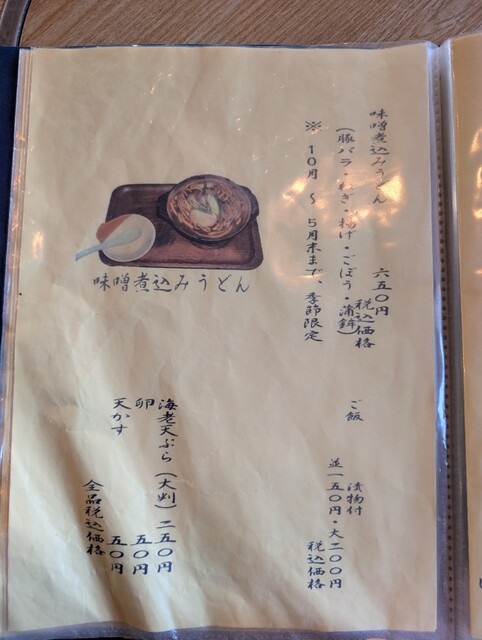 味噌煮込みうどん 六五〇円
税込価格
(豚バラ・ねぎ・揚げ・ごぼう・蒲鉾)
※ 10月 〜 5月末まで、季節限定
味噌煮込みうどん
ご飯 漬物付
並一五〇円・大二〇〇円
税込価格
海老天ぷら(大判)二五〇円
卵 五〇円
天かす 五〇円
全品税込価格